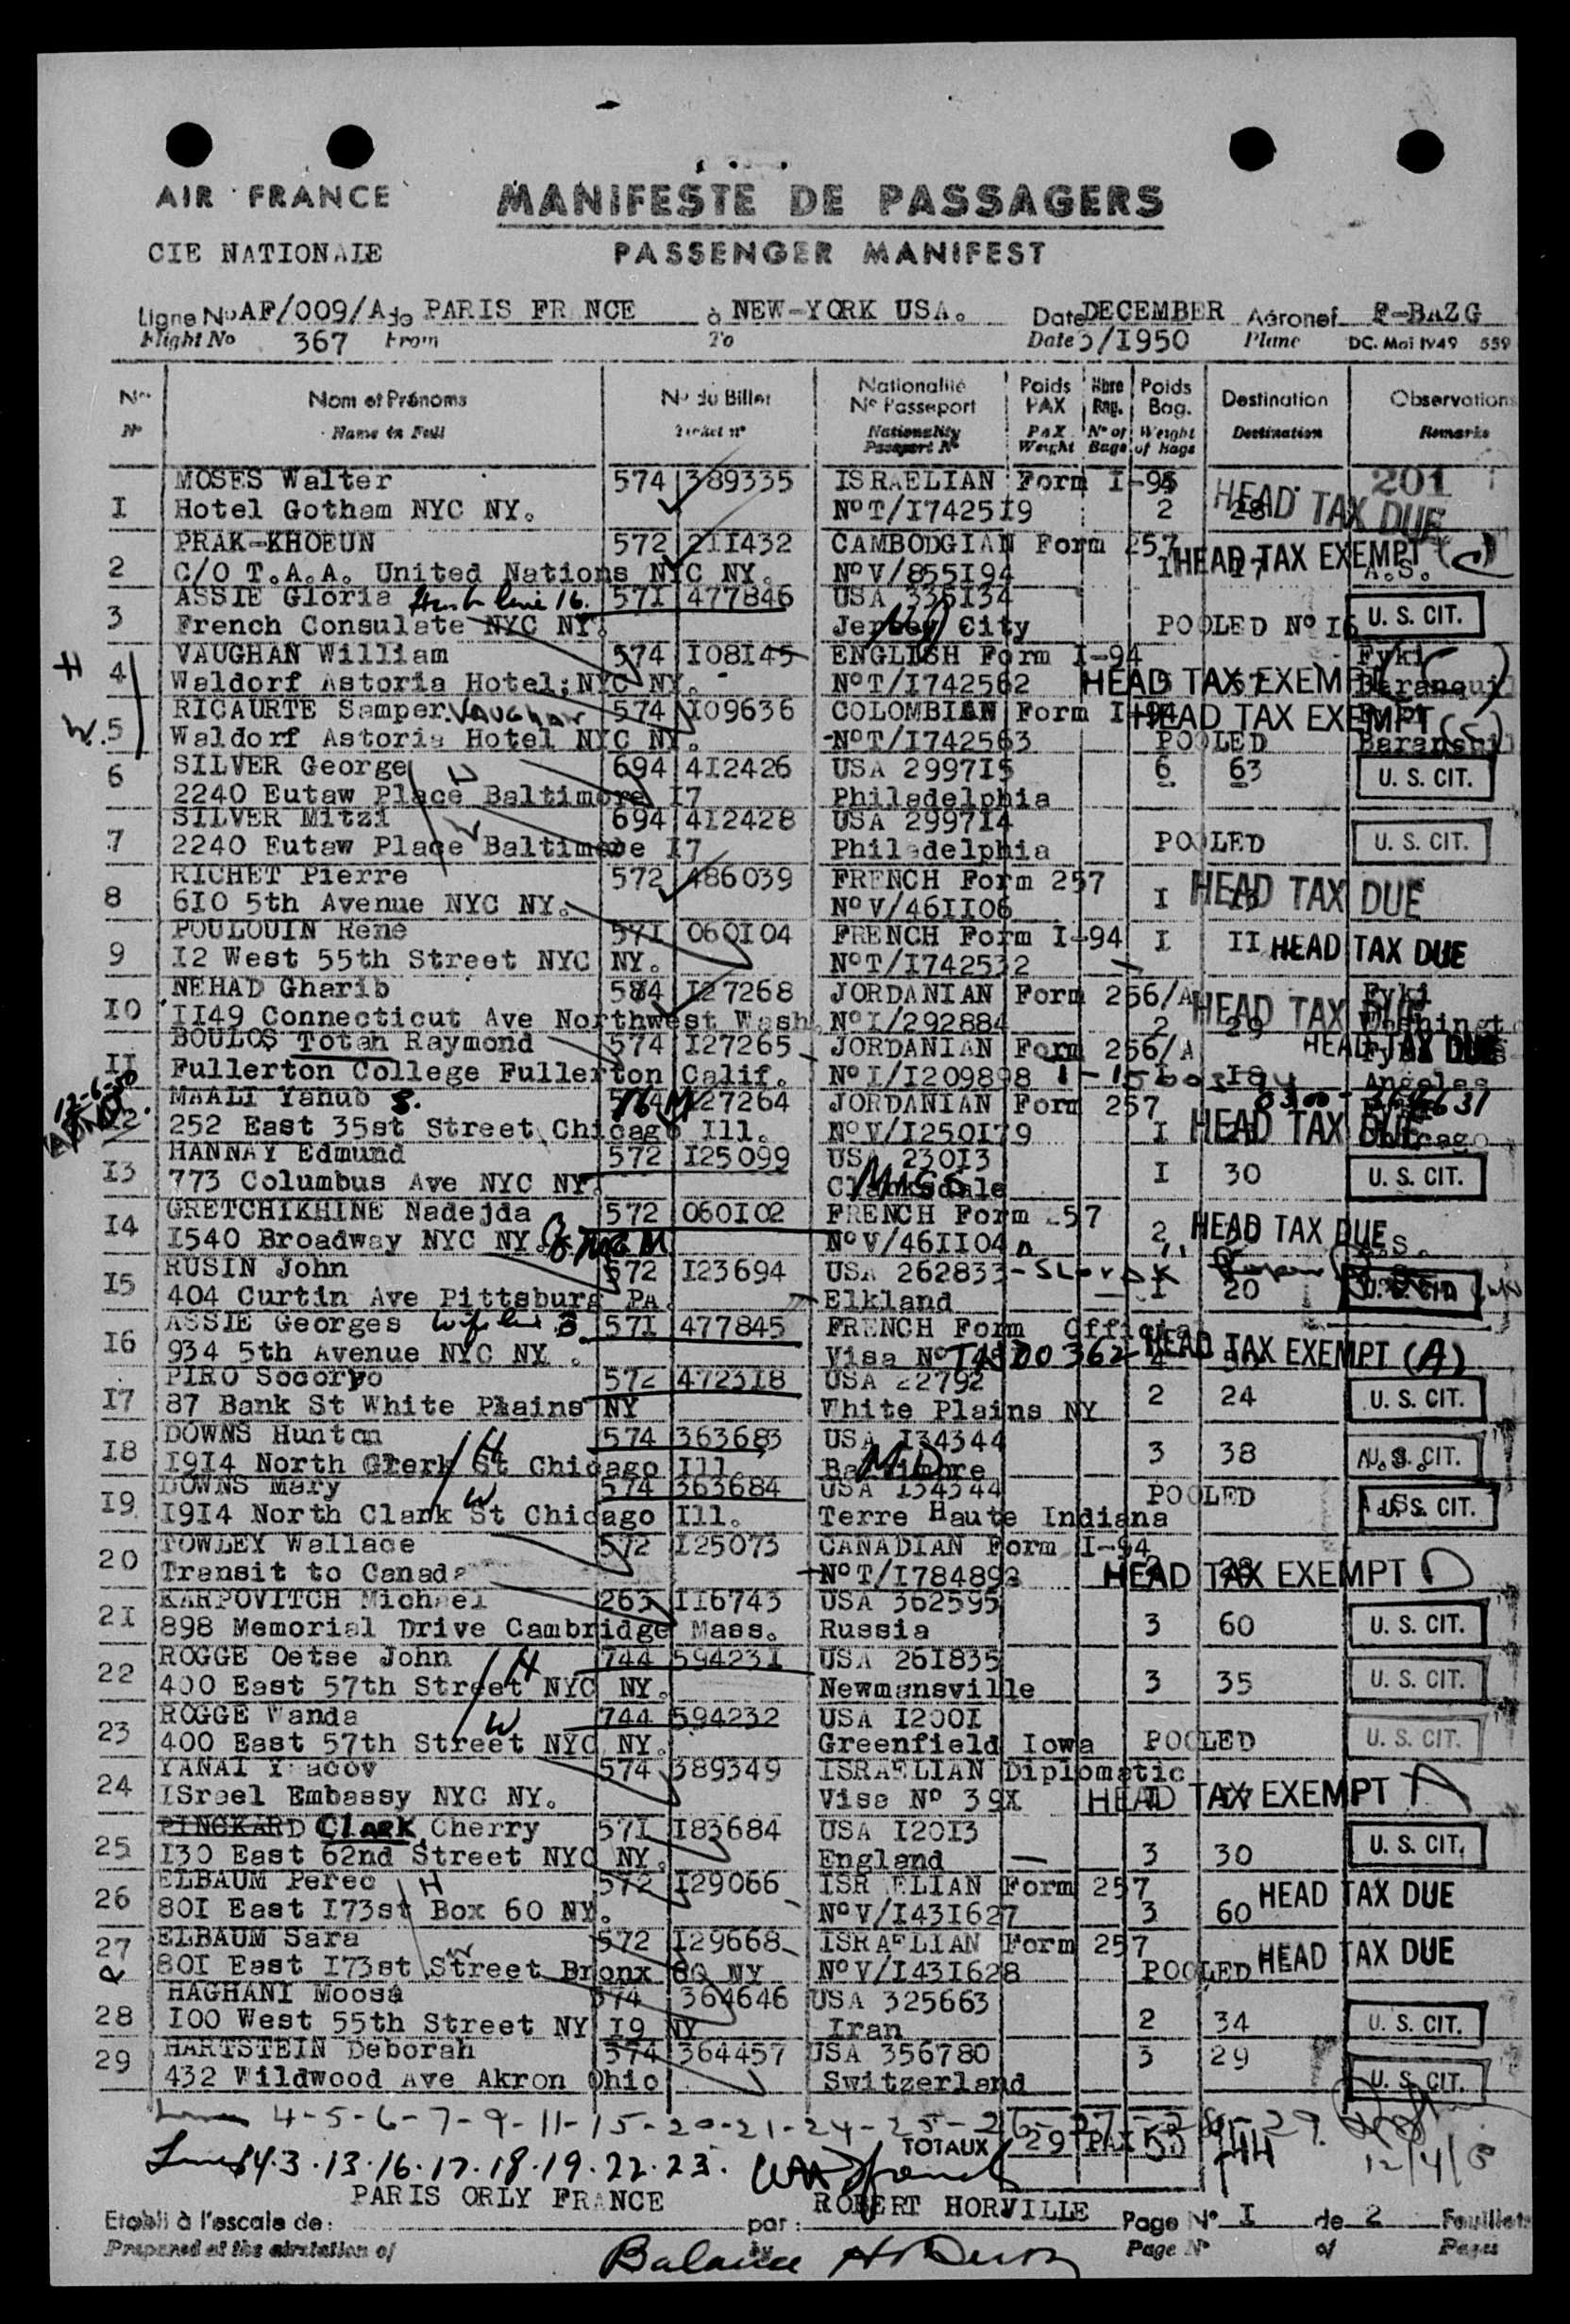 AIR FRANCE MANIFESTE DE PASSAGERS
CIE NATIONALE PASSENGER MANIFEST
Ligne No AF/009/A de PARIS FR NCE à NEW-YORK USA. Date DECEMBER Aéronef F-BAZG
Flight No 367 From To Date 3/I950 Plane DC. Mai 1949 559
No Nom et Prénoms No du Billet Nationalité No Passeport Poids PAX Nbre Bag. Poids Bag. Destination Observations
No Name in Full Ticket no Nationality Passport No PAX Weight No of Bags Weight of Bags Destination Remarks
MOSES Walter 574 389335 ISRAELIAN Form I-95 201
I Hotel Gotham NYC NY. NoT/I7425I9 2 28 HEAD TAX DUE
PRAK-KHOEUN 572 2II432 CAMBODGIAN Form 257
2 C/O T.A.A. United Nations NYC NY. NoV/855I94 I HEAD TAX EXEMPT (C) A.S.
3 ASSIE Gloria Husb line 16. 57I 477846 USA 335I34
French Consulate NYC NY. Jersey City NJ POOLED No I6 U. S. CIT.
H 4 VAUGHAN William 574 I08I45 ENGLISH Form I-94 Fyki
Waldorf Astoria Hotel;NYC NY. NoT/I742562 HEAD TAX EXEMPT
W. 5 RICAURTE Samper VAUGHAN 574 I09636 COLOMBIAN Form I-94 HEAD TAX EXEMPT
Waldorf Astoria Hotel NYC NY. NoT/I742563 POOLED
6 SILVER George 694 412426 USA 2997I5 6 63 U. S. CIT.
2240 Eutaw Place Baltimore I7 Philadelphia
SILVER Mitzi W 694 412428 USA 2997I4
7 2240 Eutaw Place Baltimore I7 Philadelphia POOLED U. S. CIT.
RICHET Pierre 572 486039 FRENCH Form 257
8 6I0 5th Avenue NYC NY. NoV/46II06 I HEAD TAX DUE
POULOUIN René 57I 060I04 FRENCH Form I-94 I II HEAD TAX DUE
9 I2 West 55th Street NYC NY. NoT/I742532
NEHAD Gharib 584 I27268 JORDANIAN Form 256/A Fyki
I0 II49 Connecticut Ave Northwest Wash. NoI/292884 2 29 HEAD TAX DUE
BOULOS Totah Raymond 574 I27265 JORDANIAN Form 256/A HEAD TAX DUE
II Fullerton College Fullerton Calif. NoI/I209898 I8 Angeles
12-6-50
MAALI Yanub S. 574 I27264 JORDANIAN Form 257
252 East 35st Street Chicago Ill. NoV/I250I79 I HEAD TAX DUE Chicago
HANNAY Edmund 572 I25099 USA 230I3
I3 773 Columbus Ave NYC NY. Clarksdale MISS I 30 U. S. CIT.
GRETCHIKHINE Nadejda 572 060I02 FRENCH Form 257
I4 I540 Broadway NYC NY. NoV/46II04 2 HEAD TAX DUE A.S.
RUSIN John 572 I23694 USA 262833
I5 404 Curtin Ave Pittsburg PA. Elkland I 20 U. S. CIT.
ASSIE Georges Wife line 3 57I 477845 FRENCH Form Official
I6 934 5th Avenue NYC NY. Visa No HEAD TAX EXEMPT (A)
PIRO Socorro 572 4723I8 USA 22792
I7 87 Bank St White Plains NY White Plains NY 2 24 U. S. CIT.
DOWNS Hunton 574 363683 USA I34344
I8 I9I4 North Clerk St Chicago Ill. H Baltimore MD 3 38 U. S. CIT.
DOWNS Mary 574 363684 USA I34344 POOLED
I9 I9I4 North Clark St Chicago Ill. W Terre Haute Indiana U. S. CIT.
TOWLEY Wallace 572 I25073 CANADIAN Form I-94
20 Transit to Canada NoT/I784893 HEAD TAX EXEMPT D
KARPOVITCH Michael 263 II6743 USA 362595
2I 898 Memorial Drive Cambridge Mass. Russia 3 60 U. S. CIT.
ROGGE Oetse John H 744 59423I USA 26I835
22 400 East 57th Street NYC NY. Newmansville 3 35 U. S. CIT.
ROGGE Wanda W 744 594232 USA I200I
23 400 East 57th Street NYC NY. Greenfield Iowa POOLED U. S. CIT.
YANAI Y acov 574 389349 ISRAELIAN Diplomatic
24 ISrael Embassy NYC NY. Visa No 39X HEAD TAX EXEMPT A
PINCKARD Clark Cherry 57I I83684 USA I20I3
25 I30 East 62nd Street NYC NY. England 3 30 U. S. CIT.
ELBAUM Perec H 572 I29066 ISR ELIAN Form 257
26 80I East I73st Box 60 NY. NoV/I43I627 3 60 HEAD TAX DUE
ELBAUM Sara W 572 I29668 ISRAELIAN Form 257
27 80I East I73st Street Bronx 60 NY NoV/I43I628 POOLED HEAD TAX DUE
HAGHANI Moosa 574 364646 USA 325663
28 I00 West 55th Street NY I9 NY Iran 2 34 U. S. CIT.
HARTSTEIN Deborah 574 364457 USA 356780 3 29
29 432 Wildwood Ave Akron Ohio Switzerland U. S. CIT.
4-5-6-7-9-11-15-20-21-24-25-26-27-28-29.
TOTAUX 29 PAX 53 12/4/5
3.13.16.17.18.19.22.23.
PARIS ORLY FRANCE ROBERT HORVILLE
Etabli à l'escale de: par: Page No I de 2 Feuillets
Prepared at the airstation of by Page No of Pages